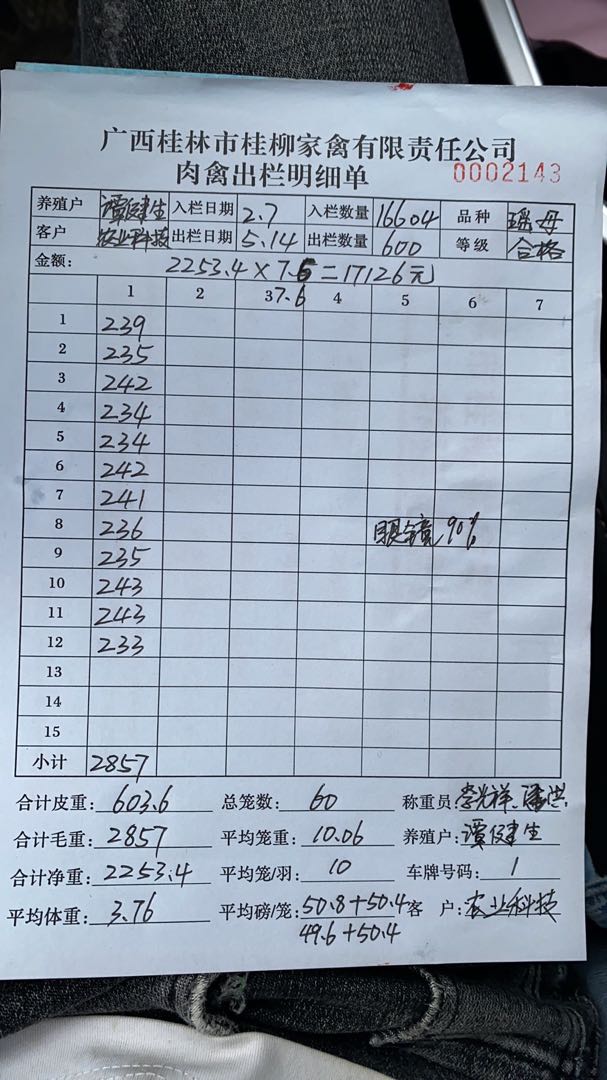 广西桂林市桂柳家禽有限责任公司
肉禽出栏明细单 0002143
养殖户 谭健生 入栏日期 2.7 入栏数量 16604 品种 瑶母
客户 农业科技 出栏日期 5.14 出栏数量 600 等级 合格
金额： 2253.4×7.6=17126元
1 2 3 7.6 4 5 6 7
1 239
2 235
3 242
4 234
5 234
6 242
7 241
8 236 眼镜90%
9 235
10 243
11 243
12 233
13
14
15
小计 2857
合计皮重: 603.6 总笼数: 60 称重员:李光祥
合计毛重: 2857 平均笼重: 10.06 养殖户:谭健生
合计净重: 2253.4 平均笼/羽: 10 车牌号码: 1
平均体重: 3.76 平均磅/笼: 50.8+50.4 客 户:农业科技
49.6+50.4